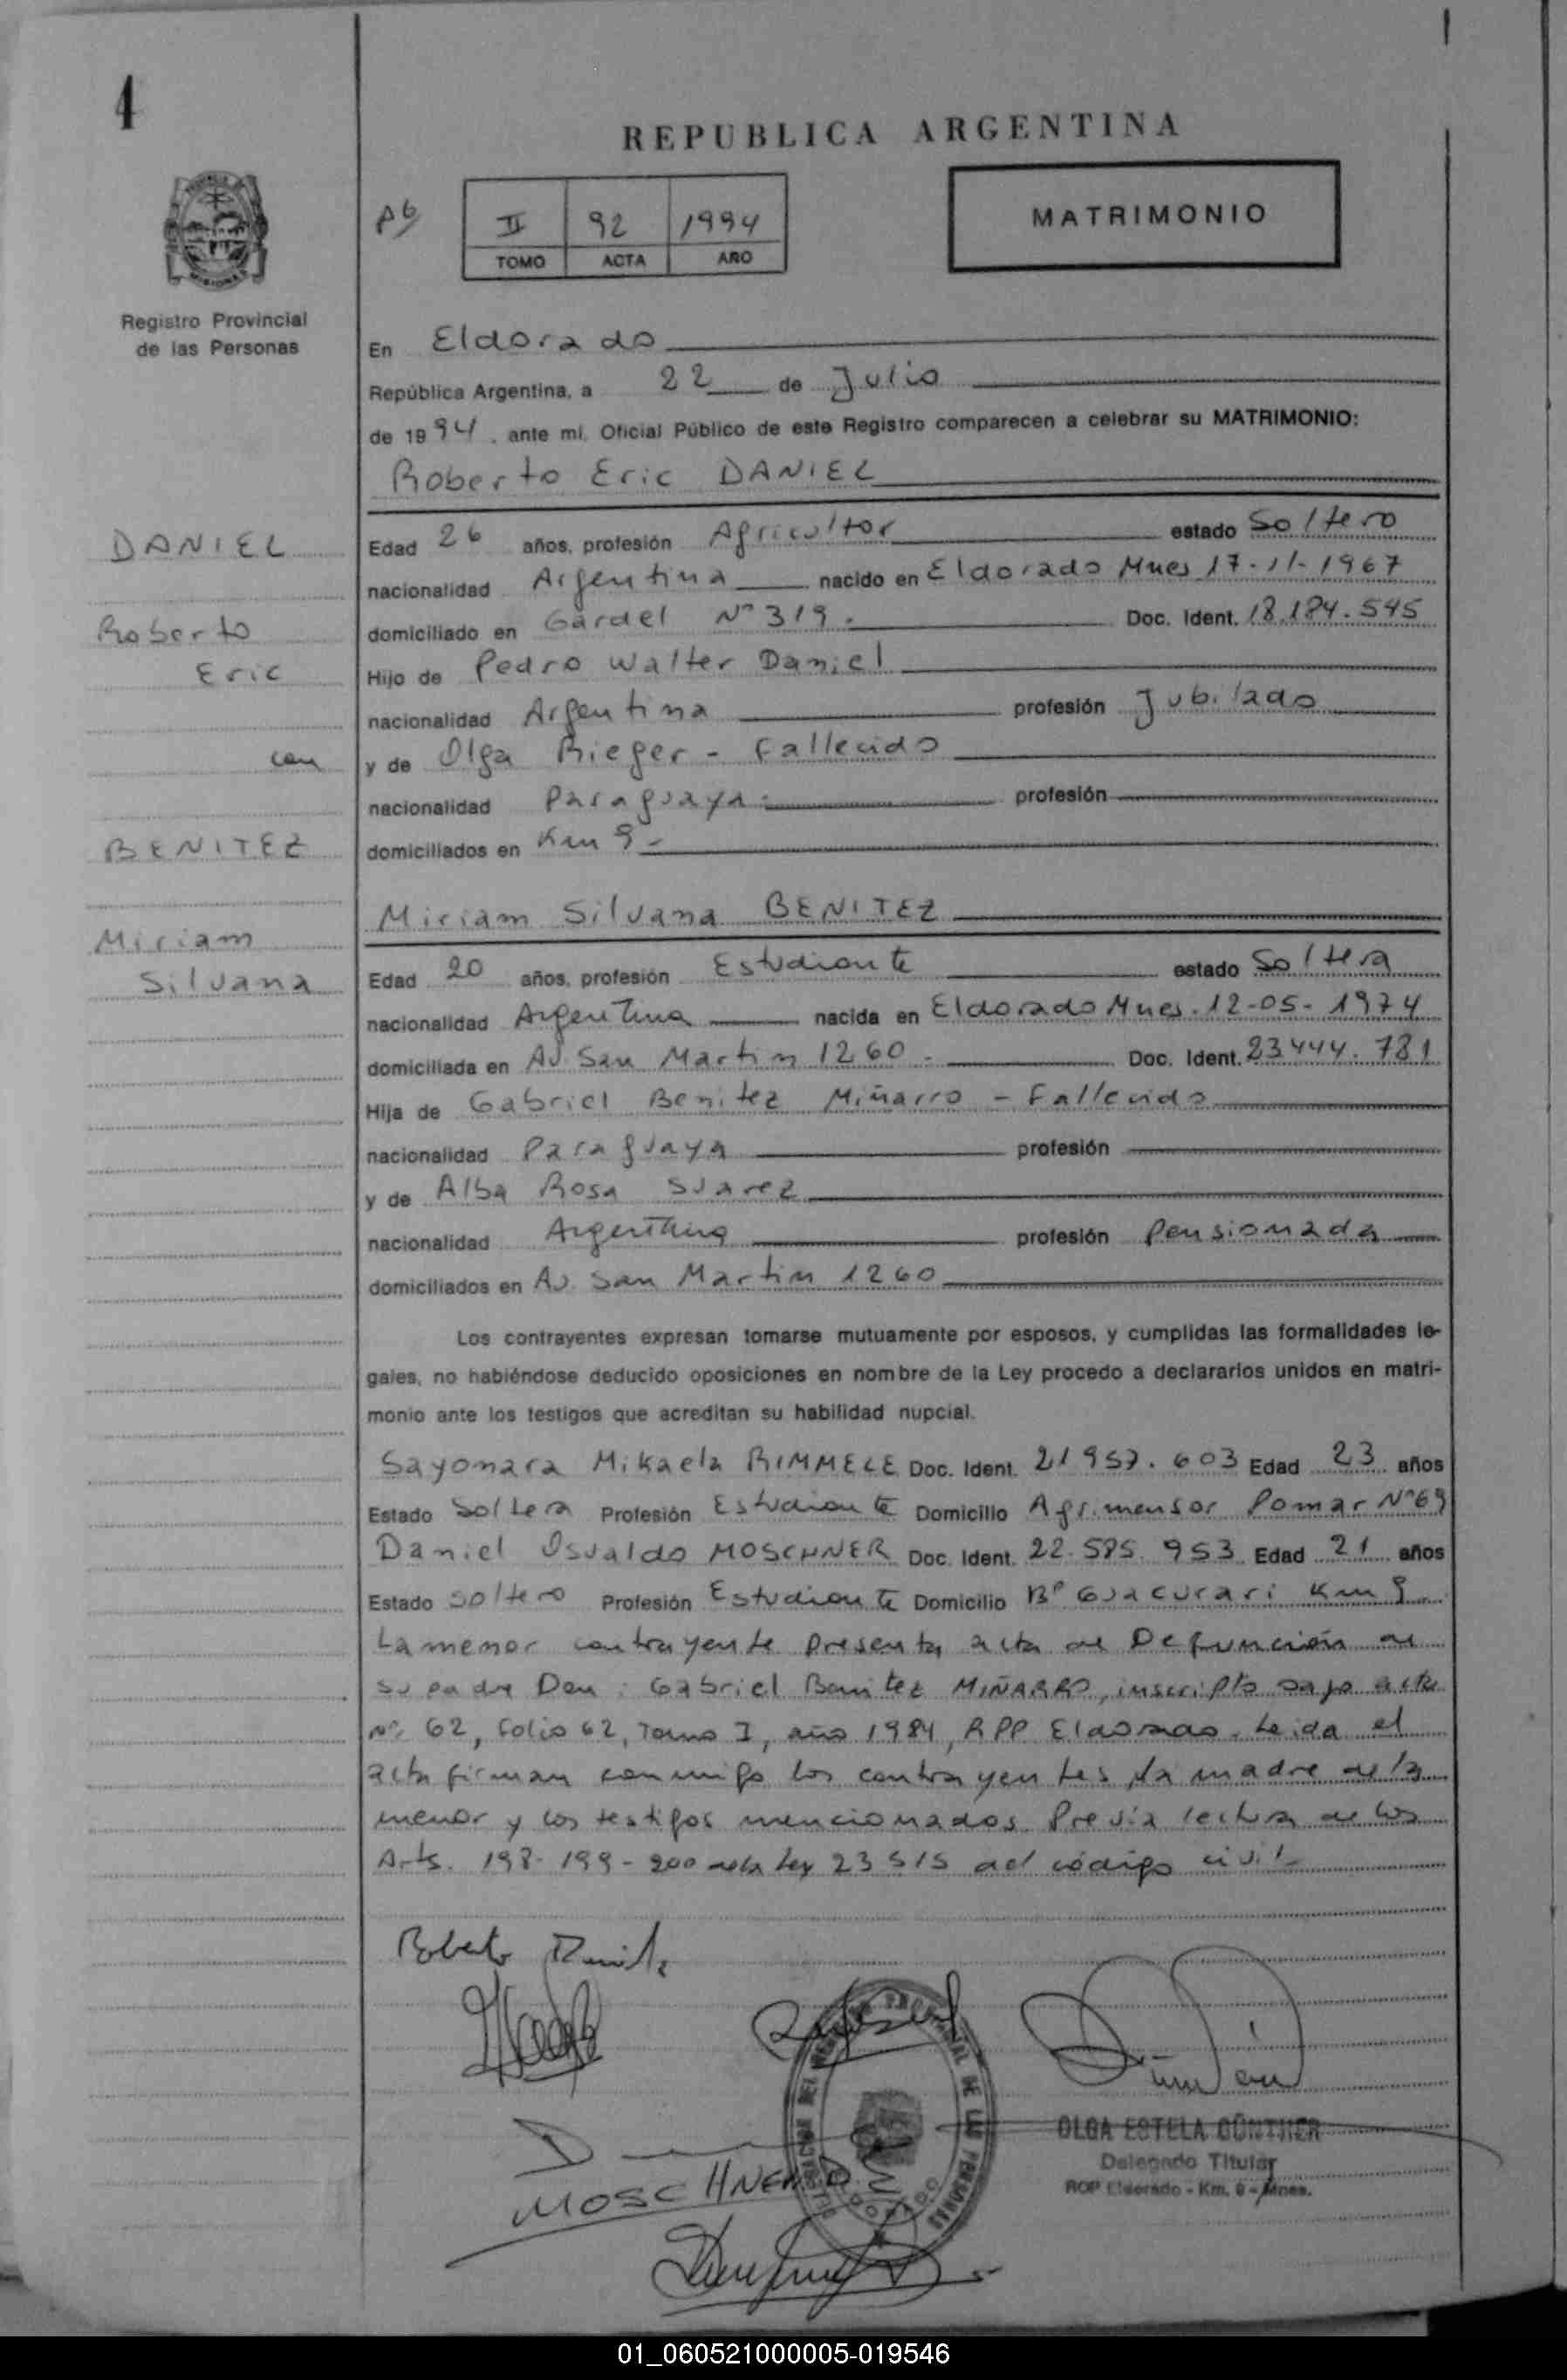 4
REPUBLICA ARGENTINA
II 92 1994
TOMO ACTA AÑO
MATRIMONIO
Registro Provincial
de las Personas
En Eldorado
República Argentina, a 22 de Julio
de 1994, ante mí, Oficial Público de este Registro comparecen a celebrar su MATRIMONIO:
Roberto Eric DANIEL
DANIEL
Roberto
Eric
con
BENITEZ
Miriam
Silvana
Edad 26 años, profesión Agricultor estado Soltero
nacionalidad Argentina nacido en Eldorado Mnes 17-11-1967
domiciliado en Gardel Nº 319. Doc. Ident. 18.184.545
Hijo de Pedro Walter Daniel
nacionalidad Argentina profesión Jubilado
y de Olga Rieger - Fallecido
nacionalidad Paraguaya. profesión
domiciliados en Km 9-
Miriam Silvana BENITEZ
Edad 20 años, profesión Estudiante estado Soltera
nacionalidad Argentina nacida en Eldorado Mnes. 12-05-1974
domiciliada en Av. San Martin 1260. Doc. Ident. 23444.781
Hija de Gabriel Benitez Miñarro - Fallecido
nacionalidad Paraguaya profesión
y de Alba Rosa Suarez
nacionalidad Argentina profesión Pensionada
domiciliados en Av. San Martin 1260
Los contrayentes expresan tomarse mutuamente por esposos, y cumplidas las formalidades le-
gales, no habiéndose deducido oposiciones en nombre de la Ley procedo a declararlos unidos en matri-
monio ante los testigos que acreditan su habilidad nupcial.
Sayonara Mikaela RIMMELE Doc. Ident. 21957.603 Edad 23 años
Estado Soltera Profesión Estudiante Domicilio Agrimensor Pomar Nº69
Daniel Osvaldo MOSCHNER Doc. Ident. 22.585.953 Edad 21 años
Estado soltero Profesión Estudiante Domicilio Bº Guacurari Km 9
La menor contrayente presenta acta de Defunción de
su padre Don: Gabriel Benitez MIÑARRO, inscripto bajo acta
nº 62, Folio 62, Tomo I, año 1984, RPP Eldorado. Leida el
acta firman conmigo los contrayentes, la madre de la
menor y los testigos mencionados. Previa lectura de los
Arts. 198-199-200 de la Ley 23515 del código civil-
Roberto Daniel
MOSCHNER
OLGA ESTELA GÜNTHER
Delegado Titular
RPP Eldorado - Km. 9 - Mnes.
01_060521000005-019546